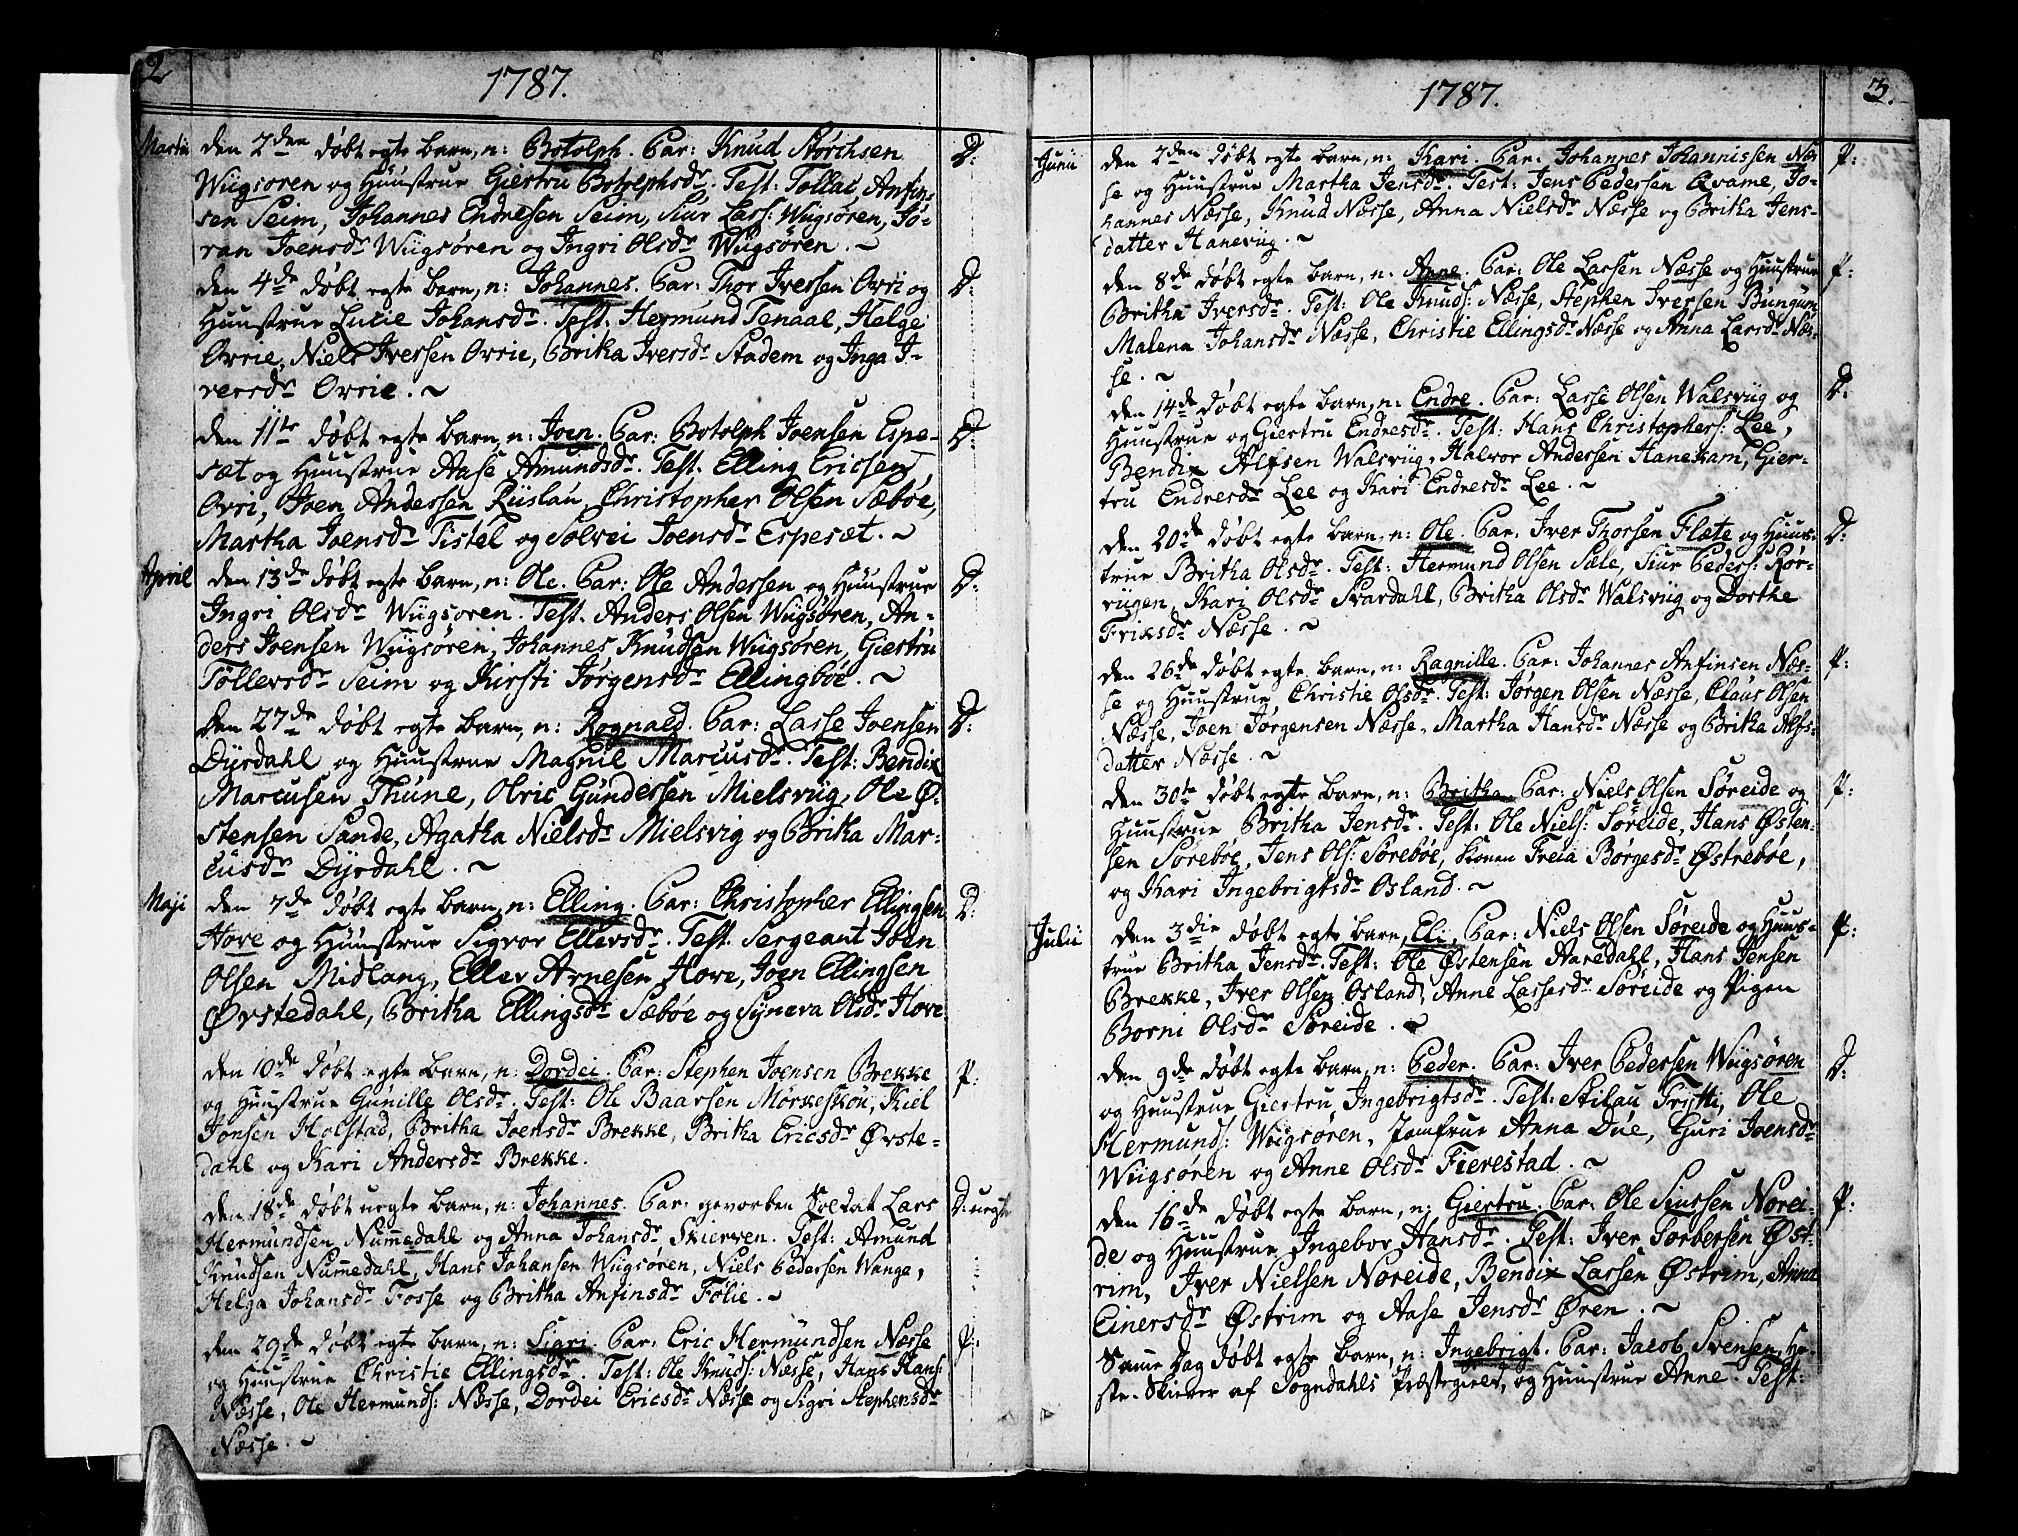 2
1787.
Martii den 2den døbt egte barn, n: Botolph. Par: Knud Störchsen D:
Wiigsøren og Huustrue Giertru Botolphsdr. Test: Tollac Anfin-
sen Seim, Johannes Endresen Seim, Siur Lars: Wiigsøren, Jö-
ran Joensdr Wiigsøren og Ingri Olsdr Wiigsøren. ~
den 4de døbt egte barn, n: Johannes. Par: Thor Iversen Ovri og D:
Huustrue Lucie Johansdr. Test: Hermund Tenaal, Helge
Ovrie, Niels Iversen Ovrie, Britha Iversdr Stadem og Inga I-
versdr Ovrie. ~
den 11te døbt egte barn, n: Joen. Par: Botolph Joensen Espe- D:
sæt og Huustrue Aase Amundsdr. Test. Elling Ericsen
Ovri, Joen Anderssen Riislau, Christopher Olsen Sæbøe,
Martha Joensdr Tistel og Solvei Joensdr Espesæt. ~
April den 13de døbt egte barn, n: Ole. Par: Ole Anderssen og Huustrue D:
Ingri Olsdr Wiigsøren. Test. Anders Olsen Wiigsøren, An-
ders Joensen Wiigsøren, Johannes Knudsen Wiigsøren, Giertru
Tollevsdr Seim og Kirsti Jørgensdr Ellingbøe. ~
den 27de døbt egte barn, n: Rognald. Par: Lasse Joensen D:
Dyrdahl og Huustrue Magnil Marcusdr. Test: Bendix
Marcusen Thune, Olric Gundersen Mielsviig, Ole Ø-
stensen Sande, Agatha Nielsdr Mielsvig og Britha Mar-
cusdr Dyrdahl. ~
Maji den 7de døbt egte barn, n: Elling. Par: Christopher Ellingsen D:
Hove og Huustrue Sigvor Ellevsdr. Test. Sergeant Joen
Olsen Midlang, Ellev Arnesen Hove, Joen Ellingsen
Øvstedahl, Britha Ellingsdr Sæbøe og Syneva Olsdr Hove.
den 10de døbt egte barn, n: Dordei. Par: Stephen Joensen Brekke P:
og Huustrue Gunille Olsdr. Test: Ole Baarsen Mørkeskou, Kiel
Jonsen Holstad, Britha Joensdr Brekke, Britha Ericsdr Øvste-
dahl og Kari Andersdr Brekke.
den 18de døbt uegte barn, n: Johannes. Par: gevorben Soldat Lars D: uegte
Hermundsen Nummedahl og Anna Johansdr Skierven. Test: Amund
Knudsen Nummedahl, Hans Johansen Wiigsøren, Niels Pedersen Wanga,
Helga Johansdr Fosse og Britha Anfinsdr Følie. ~
den 29de døbt egte barn, n: Sigri Par: Eric Hermundsen Næsse P:
og Huustrue Christie Ellingsdr. Test: Ole Knuds: Næsse, Hans Hans:
Næsse, Ole Hermunds: Næsse, Dordei Ericsdr Næsse og Sigri Stephensdr
Næsse. ~
1787. 3.
Junii den 2den døbt egte barn, n: Kari. Par: Johannes Johannissen Næs- P:
se og Huustrue Martha Jensdr. Test: Jens Pedersen Qvame, Jo-
hannes Næsse, Knud Næsse, Anna Nielsdr Næsse og Britha Jens-
datter Haneviig. ~
den 8de døbt egte barn, n: Anne. Par: Ole Larsen Næsse og Huustrue P:
Britha Iversdr. Test: Ole Knuds: Næsse, Stephen Iversen Bungum,
Malena Johansdr Næsse, Christie Ellingsdr Næsse og Anna Larsdr Næs-
se. ~
den 14de døbt egte barn, n: Endre. Par: Lasse Olsen Walsviig og D:
Huustrue og Giertru Endresdr. Test: Hans Christophers: Lee,
Bendix Alfsen Walsviig, Halvor Andersen Hanekam, Gier-
tru Endresdr Lee og Kari Endresdr Lee. ~
den 20de døbt egte barn, n: Ole. Par: Iver Thorsen Flæte og Huus- D:
true Britha Olsdr. Test: Hermund Olsen Sæle, Siur Peders: Rør-
viigen, Kari Olsdr Svardahl, Britha Olsdr Walsviig og Dorthe
Friksdr Næsse. ~
den 26de døbt egte barn, n: Ragnille. Par: Johannes Anfinsen Næs- P:
se og Huustrue Christie Olsdr. Test: Jørgen Olsen Næsse, Claus Olsen
Næsse, Joen Jørgensen Næsse, Martha Hansdr Næsse og Britha Alfs-
datter Næsse. ~
den 30te døbt egte barn, n: Britha Par: Niels Olsen Søreide og P:
Huustrue Britha Jensdr. Test: Ole Niels: Søreide, Hans Østen-
sen Sørebøe, Jens Ols: Sørebøe, Konen Freia Børgesdr Østrebøe,
og Kari Ingebrigtsdr Osland. ~
Julii den 3die døbt egte barn, Eli, Par: Niels Olsen Søreide og Huus- P:
true Britha Jensdr. Test: Ole Østensen Aaredahl, Hans Jensen
Brekke, Iver Olsen Osland, Anne Lassesdr Søreide og Pigen
Borni Olsdr Søreide. ~
den 9de døbt egte barn, n: Peder. Par: Iver Pedersen Wiigsøren D:
og Huustrue Giertru Ingebrigtsdr. Test: Skilau Tristi, Ole
Hermunds: Wiigsøren, Jomfrue Anna Due, Guri Joensdr
Wiigsøren og Anne Olsdr Fierestad. ~
den 16de døbt egte barn, n: Giertru. Par: Ole Siursen Norei- P:
de og Huustrue Ingebor Hansdr. Test: Iver Torbersen Øst-
rim, Iver Nielsen Noreide, Bendix Larsen Østrim, Anna
Einersdr Østrim og Aase Jensdr Øren. ~
Samme Dag døbt egte barn, n: Ingebrigt. Par: Jacob Svensen, He-
ste-Skierer af Sogndahls Præstegield, og Huustrue Anne. Test: